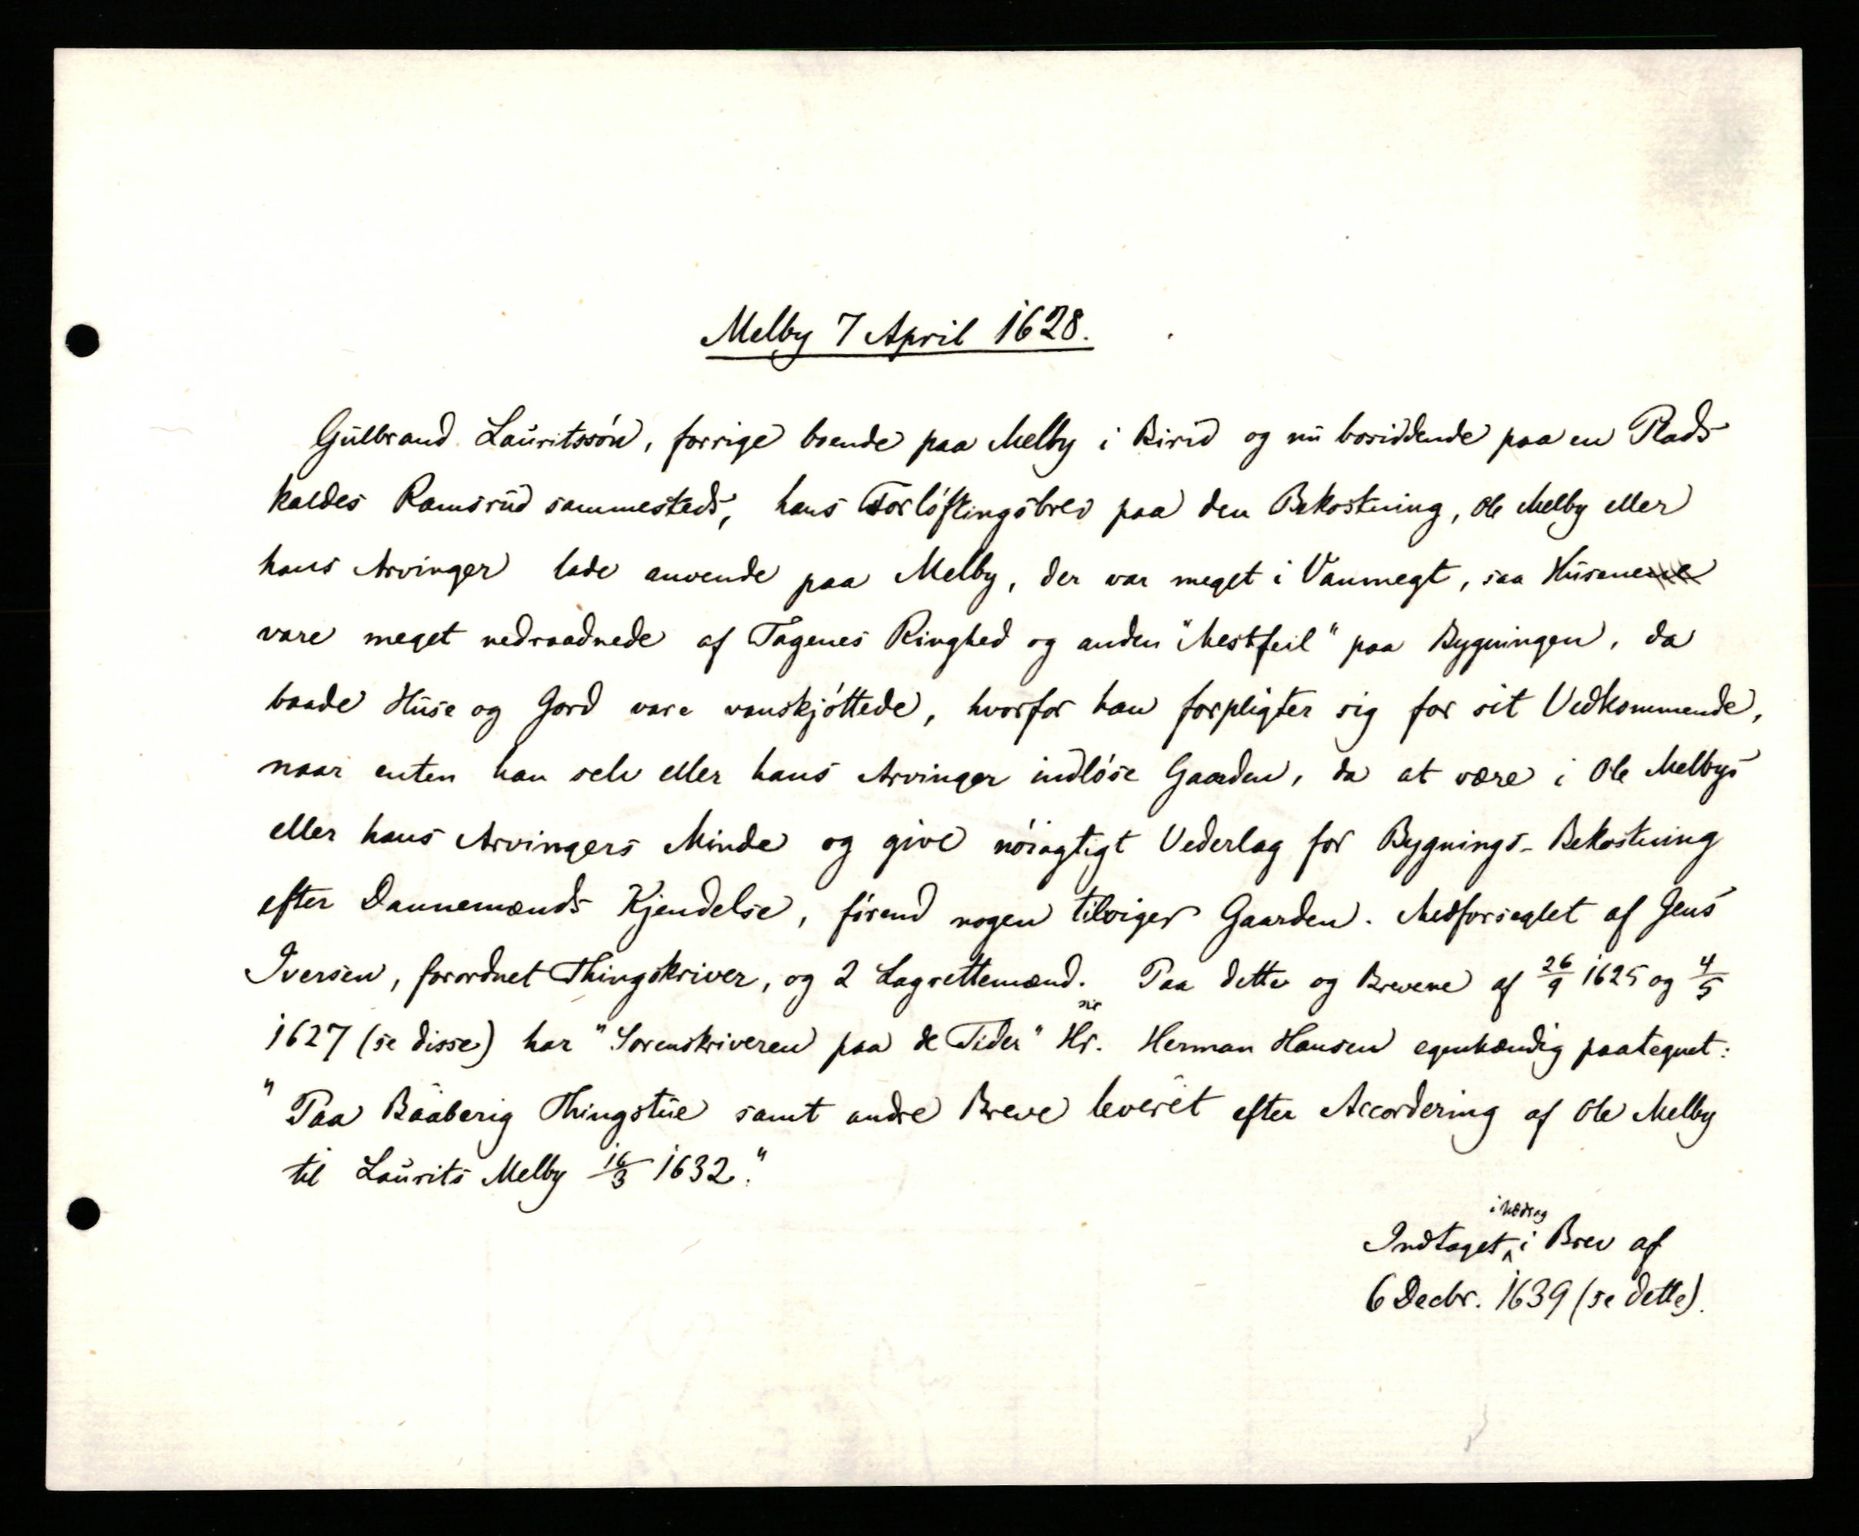 Melby 7 April 1628.
Gulbrand Lauritssón, forrige boende paa Melby i Birid og nu bosiddende paa en Plads
kaldes Ramsrud sammesteds, hans Forlóftingsbrev paa den Bekostning, Ole Melby eller
hans Arvinger lade anvende paa Melby, der var meget i Vanmegt, saa Husene
vare meget nedraadnede af Tagenes Ringhed og anden "Mestfeil" paa Bygningen, da
baade Huse og Jord vare vanskjóttede, hvorfor han forpligter sig for sit Vedkommende,
naar enten han selv eller hans Arvinger indlóse Gaarden, da at være i Ole Melbys
eller hans Arvingers Minde og give nóiagtigt Vederlag for Bygnings-Bekostning
efter Dannemænds Kjendelse, fórend nogen tilviger Gaarden. Medforseglet af Jens
Iversen, forordnet Thingskriver, og 2 Lagrettemænd. Paa dette og Brevene af 26/9 1625 og 4/5
1627 (se disse) har "Sorenskriveren paa de Tider" sir Hr. Herman Hansen egenhændig paategnet:
"Paa Baaberig Thingstue samt andre Breve leverét efter Accordering af Ole Melby
til Laurits Melby 16/3 1632."
Indtaget i Brev af
6 Decbr. 1639 (se dette).